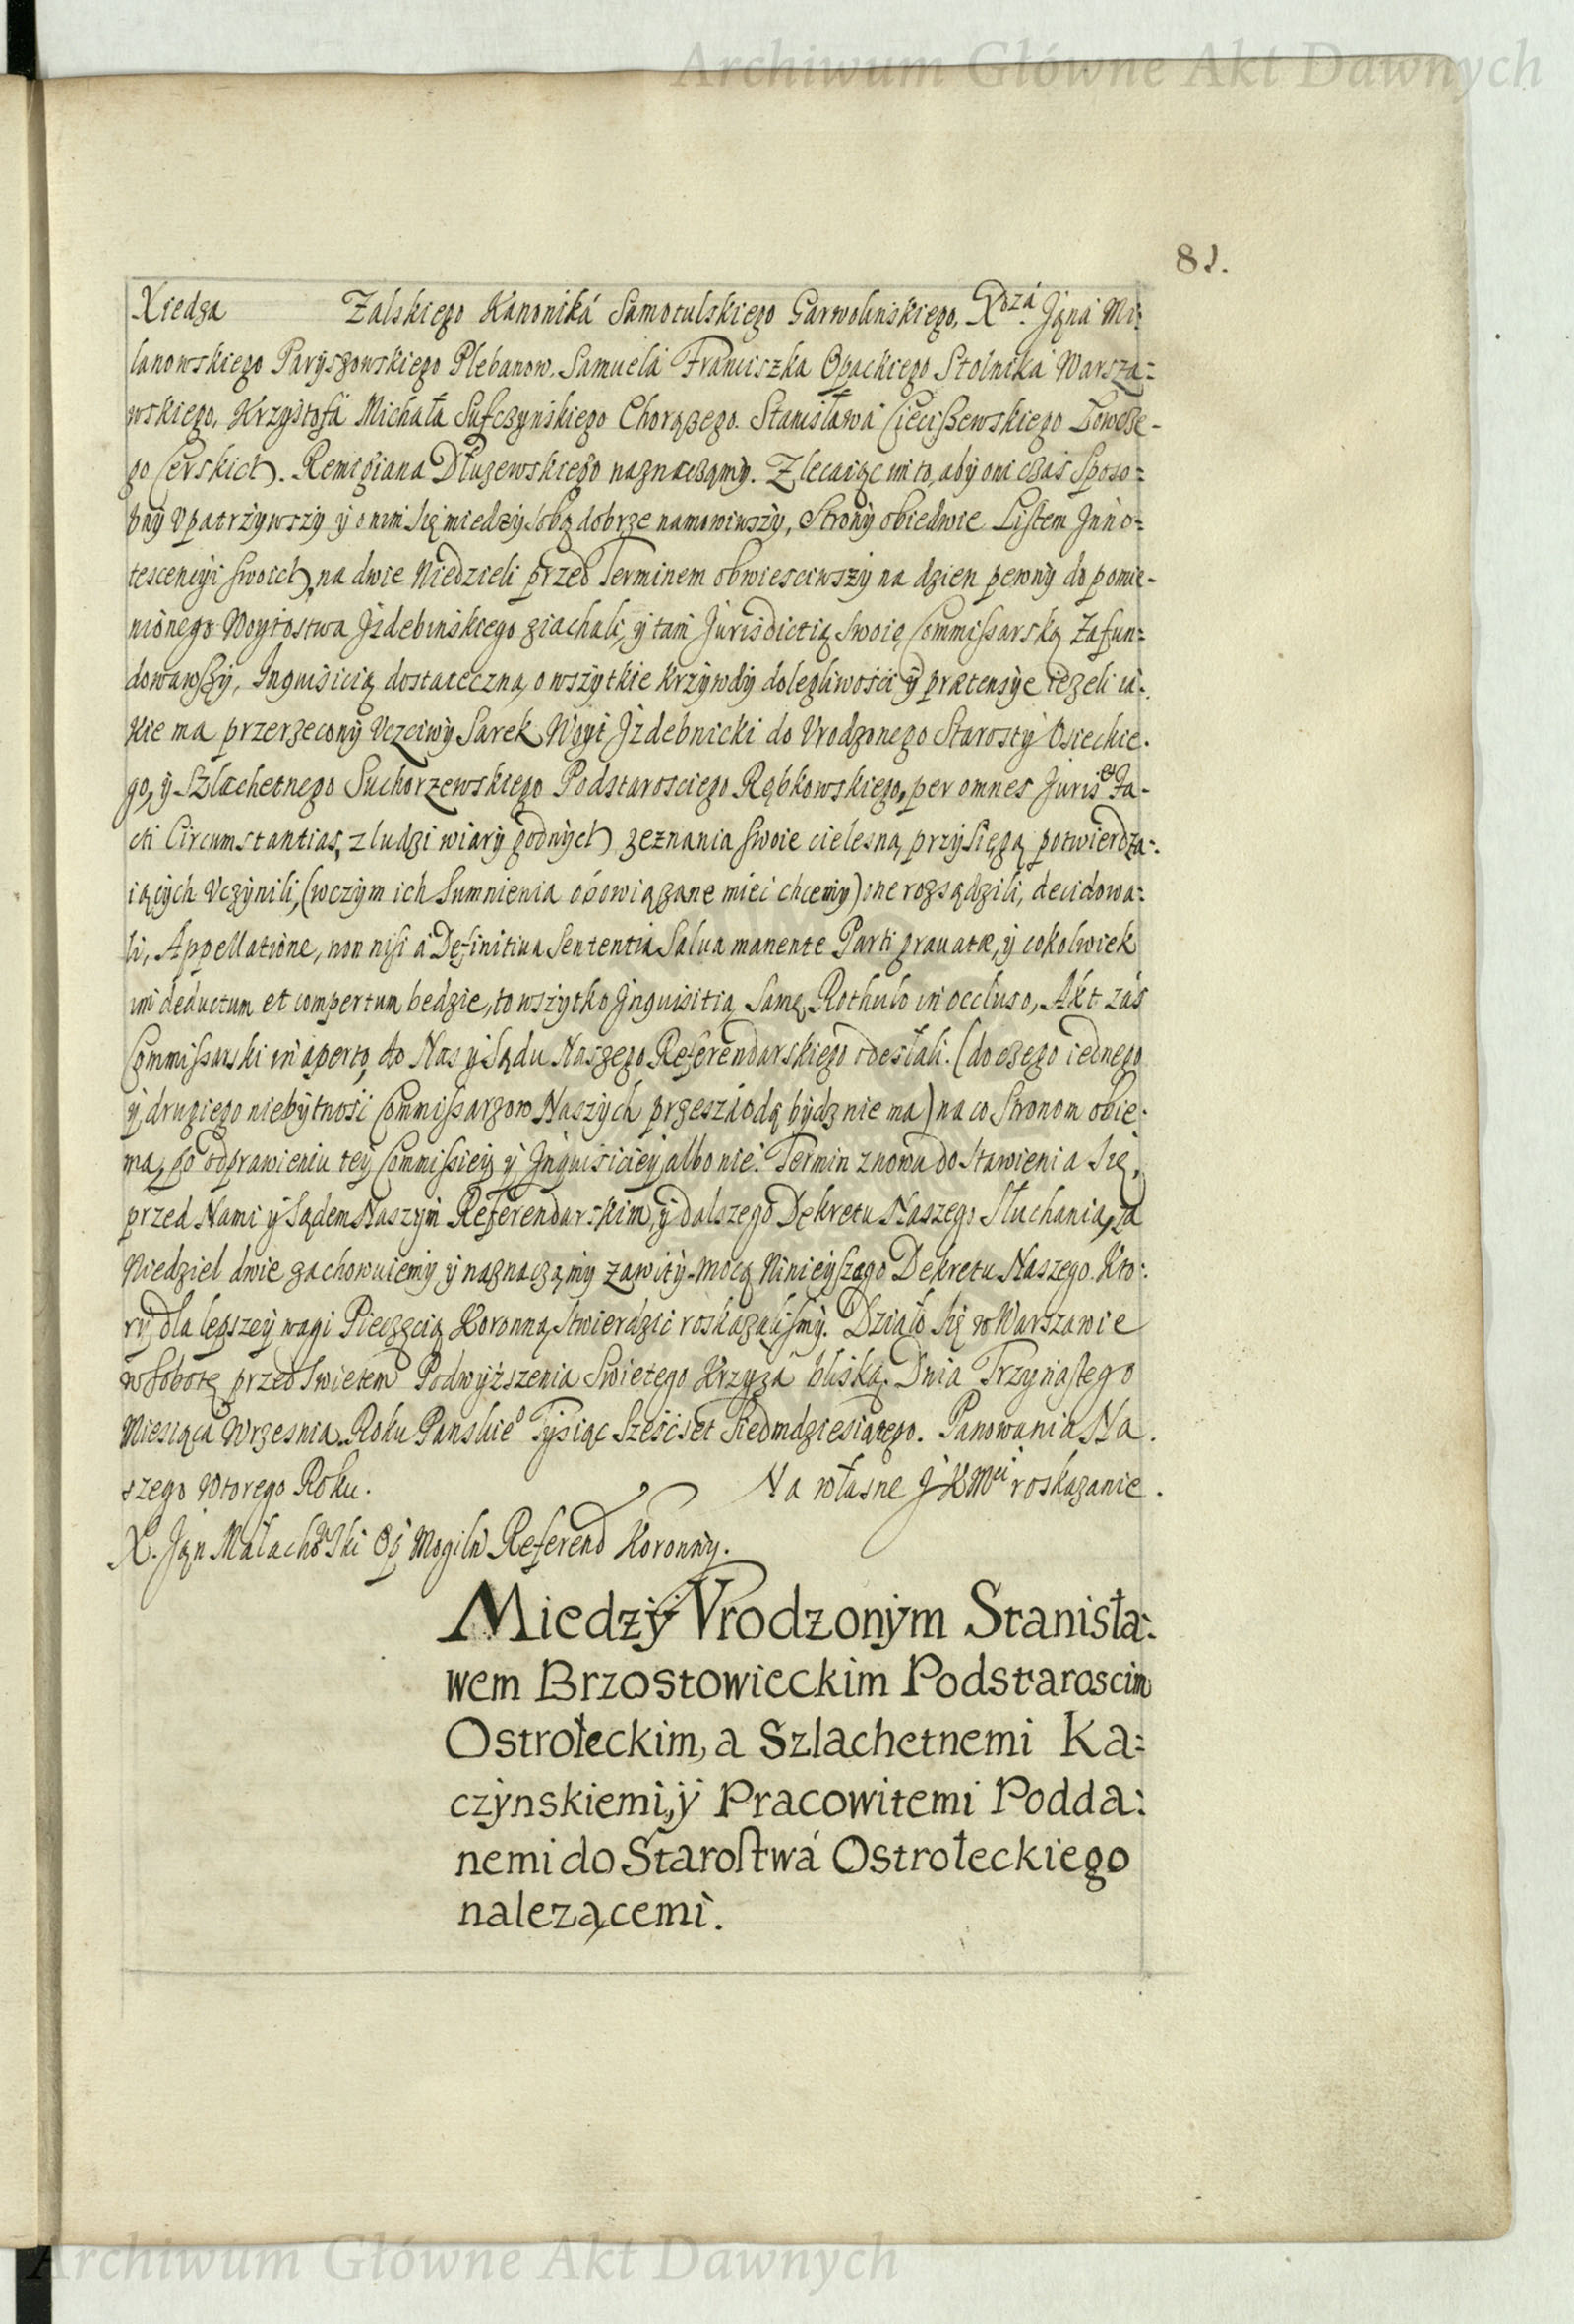 Archiwum Główne Akt Dawnych
81.
Xiedza Zalskiego Kanoniká Samotulskiego Garwolinskiego, Xdzá Jąná Mi:
lanowskiego Paryszowskiego Plebanow. Samuelá Franciszka Opackiego Stolniká Warsza:
wskiego, Krzysztofá Michała Sufczynskiego Chorązego. Stanisławá Ciecißewskiego Łowcze-
go Cerskich. Remigiana Dłuzewskiego naznacząmy. Zlecaiąc im to, aby oni czas sposo:
bny vpatrzywszy y o nim się miedzy sobą dobrze namowiwszy, Strony obiedwie Listem Inno:
tescencyi swoich, na dwie Niedzieli przed Terminem obwiesciwszy na dzien pewny do pomie-
nionego Woytostwa Jzdebinskiego ziachali, y tam Jurisdictią swoię Commissarską zafun:
dowawszy, Inquisicią dostateczną, o wszytkie krzywdy dolegliwości y prætensye iezeli ia:
kie ma przerzeczony Vczciwy Sarek Woyt Jzdebnicki do Vrodzonego Starosty Osieckie.
go, y Szlachetnego Suchorzewskiego Podstarosciego Rąbkowskiego, per omnes Juris et Fa-
cti Circumstantias, z ludzi wiary godnych zeznania swoie cielesną przysięgą potwierdza:
iących vczynili, (wczym ich Sumnienia obowiązane mieć chcemy) one rozsądzili, decidowa:
li, Appellatione, non nisi á Definitiua Sententia Salua manente Parti grauatæ, y cokolwiek
im deductum et compertum bedzie, to wszytko Jnquisitią samę Rothulo in occluso, Akt zás
Commissarski in aperto, do Nas y Sądu Naszego Referendarskiego odesłali. (do czego iednego
y drugiego niebytność Commissarzow Naszych przeszkodą bydz nie ma) na co Stronom obie:
ma, po odprawieniu tey Commissiey y Jnquisiciey albo nie. Termin znowu do stawienia się,
przed Nami y Sądem Naszym Referendarskim, y dalszego Dekretu Naszego słuchania, zá
Niedziel dwie zachowuiemy y naznacząmy zawity. Mocą Ninieyszego Dekretu Naszego. Kto:
ry dla lepszey wagi Pieczęcią Koronną stwierdzić roskazalismy. Działo się w Warszawie
w Sobotę przed Swietem Podwyższenia Swietego Krzyzá bliską. Dnia Trzynastego
Miesiącá Wrzesnia. Roku Panskieo Tysiąc Sześćset Siedmdziesiątego. Panowania Na.
szego Wtorego Roku. Na własne J K Mci roskazanie.
X. Jąn Małachowski Op Mogiln Referend Koronny.
Miedzy Vrodzonym Stanisła:
wem Brzostowieckim Podstaroscim
Ostrołeckim, a Szlachetnemi Ka:
czynskiemi, y Pracowitemi Podda:
nemi do Starostwá Ostrołeckiego
nalezącemi.
Archiwum Główne Akt Dawnych